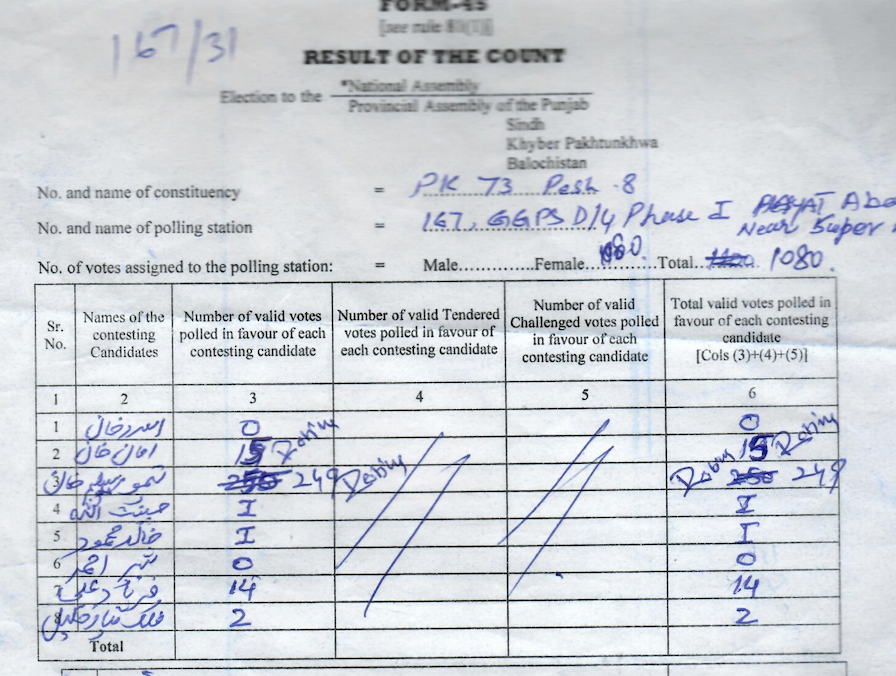 FORM-45
[see rule 81(1)]
167/31
RESULT OF THE COUNT
Election to the *National Assembly
Provincial Assembly of the Punjab
Sindh
Khyber Pakhtunkhwa
Balochistan
No. and name of constituency = PK 73 Pesh-8
No. and name of polling station = 167, GGPS D/4 Phase I
Near Super
No. of votes assigned to the polling station: = Male..............Female...1080...Total... 1080.
Sr. No. Names of the contesting Candidates Number of valid votes polled in favour of each contesting candidate Number of valid Tendered votes polled in favour of each contesting candidate Number of valid Challenged votes polled in favour of each contesting candidate Total valid votes polled in favour of each contesting candidate [Cols (3)+(4)+(5)]
1 2 3 4 5 6
1 اسد خان 0 0
2 امان خان 15 15
3 تیمور سلیم خان 250 249 250 249
4 I I
5 خالد محمود I I
6 شبیر احمد 0 0
7 فرہاد علی 14 14
8 2 2
Total